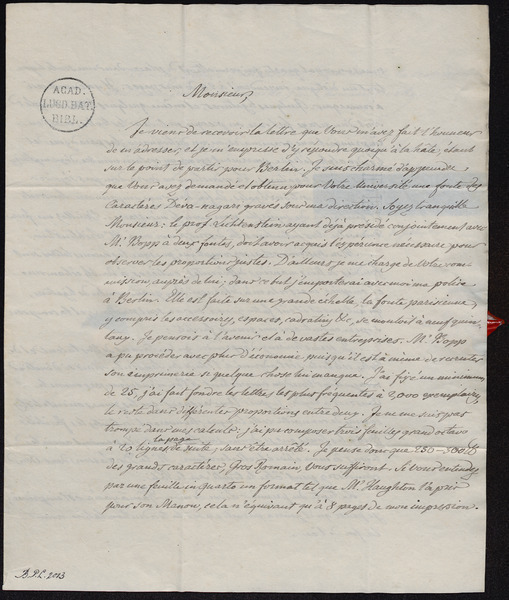 ACAD.
LUGD. BAT.
BIBL.
Monsieur,
Je viens de recevoir la lettre que Vous m'avez fait l'honneur
de m'adresser, et je m'empresse d'y repondre quoiqu'à la hâte, étant
sur le point de partir pour Berlin. Je suis charmé d'apprendre
que Vous avez demandé et obtenu pour Votre Université une fonte des
Caractères Deva-nagari gravés sous ma direction. Soyez tranquille
Monsieur: le prof. Lichtenstein ayant déjà présidé conjointement avec
Mr. Bopp à deux fontes, doit avoir acquis l'expérience nécessaire pour
observer les proportions justes. D'ailleurs je me charge de Votre com-
mission, auprès de lui, dans ce but j'emporterai avec moi ma police
à Berlin. Elle est faite sur une grande échelle, la fonte parisienne,
y compris les accessoires, espaces, cadratins &c, se montoit à neuf quin-
taux. Je pensois à l'avenir et à de vastes entreprises. Mr. Bopp
a pu procéder avec plus d'économie puisqu'il est à même de recruter
son imprimerie si quelque chose lui manque. J'ai fixé un minimum
de 25, j'ai fait fondre les lettres les plus fréquentes à 2,000 exemplaires,
le reste dans différentes proportions entre deux. Je ne me suis pas
trompé dans mes calculs: j'ai pu composer trois feuilles grand octavo
à 20 lignes la page de suite, sans être arrêté. Je pense donc que 250-300 ℔
des grands caractères, Gros Romain, Vous suffiront. Si Vous entendez
par une feuille in quarto un format tel que Mr. Haughton l'a pris
pour son Manou, cela n'équivaut qu'à 8 pages de mon impression.
B.P.L. 2013